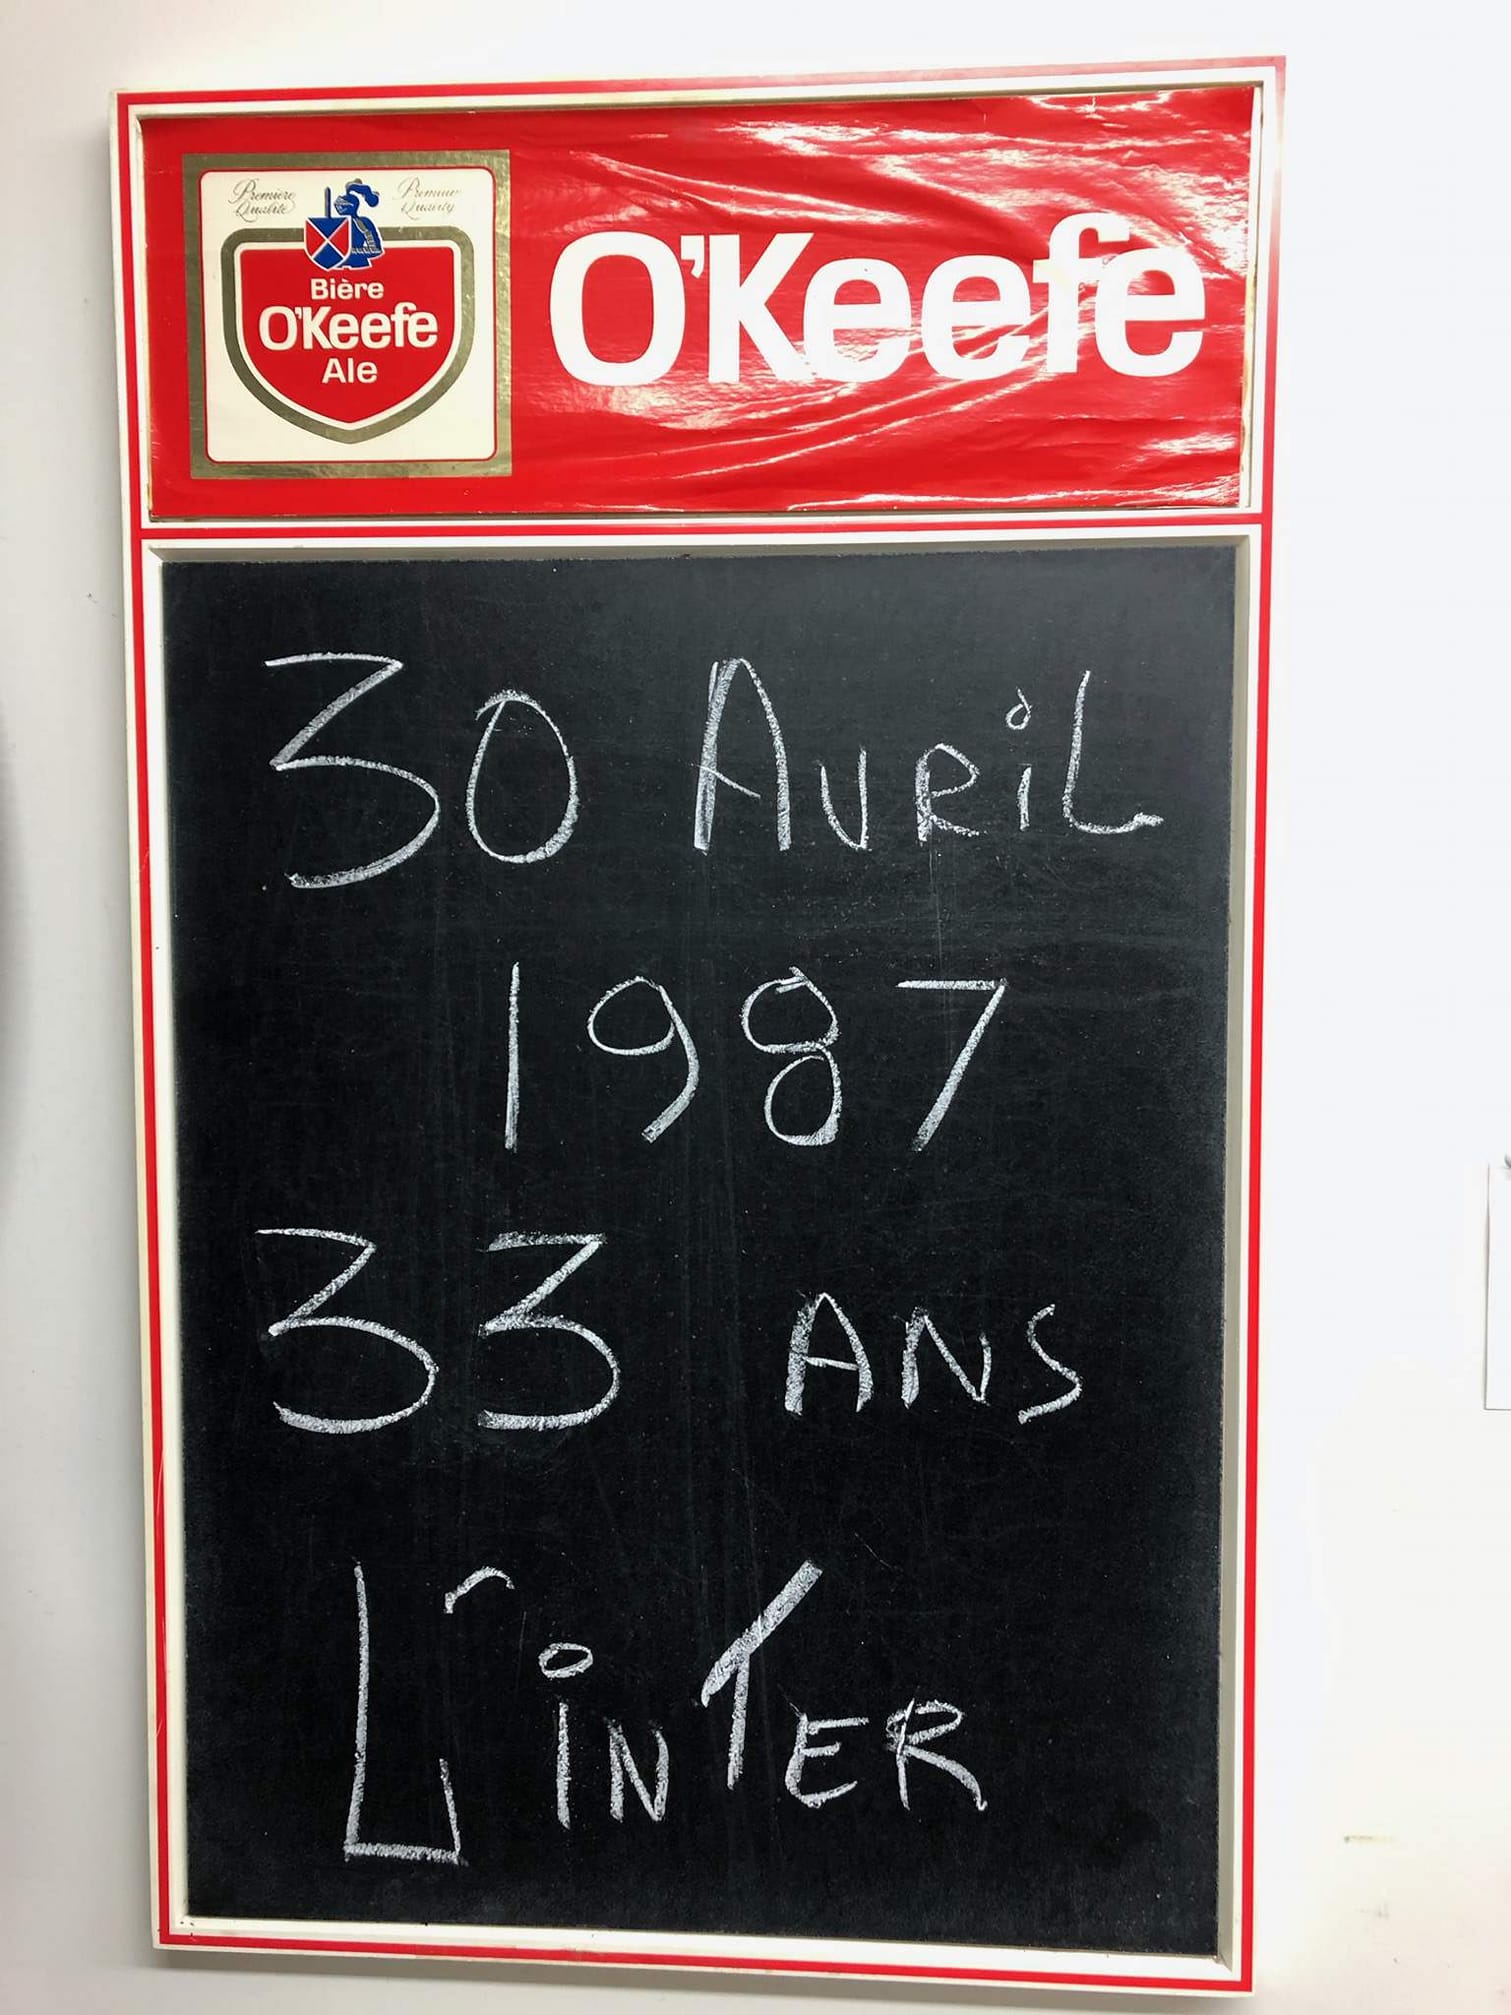 Première Qualité
Premier Quality
Bière
O'Keefe
Ale
O'Keefe
30 AVRiL
1987
33 ANS
L'iNTER